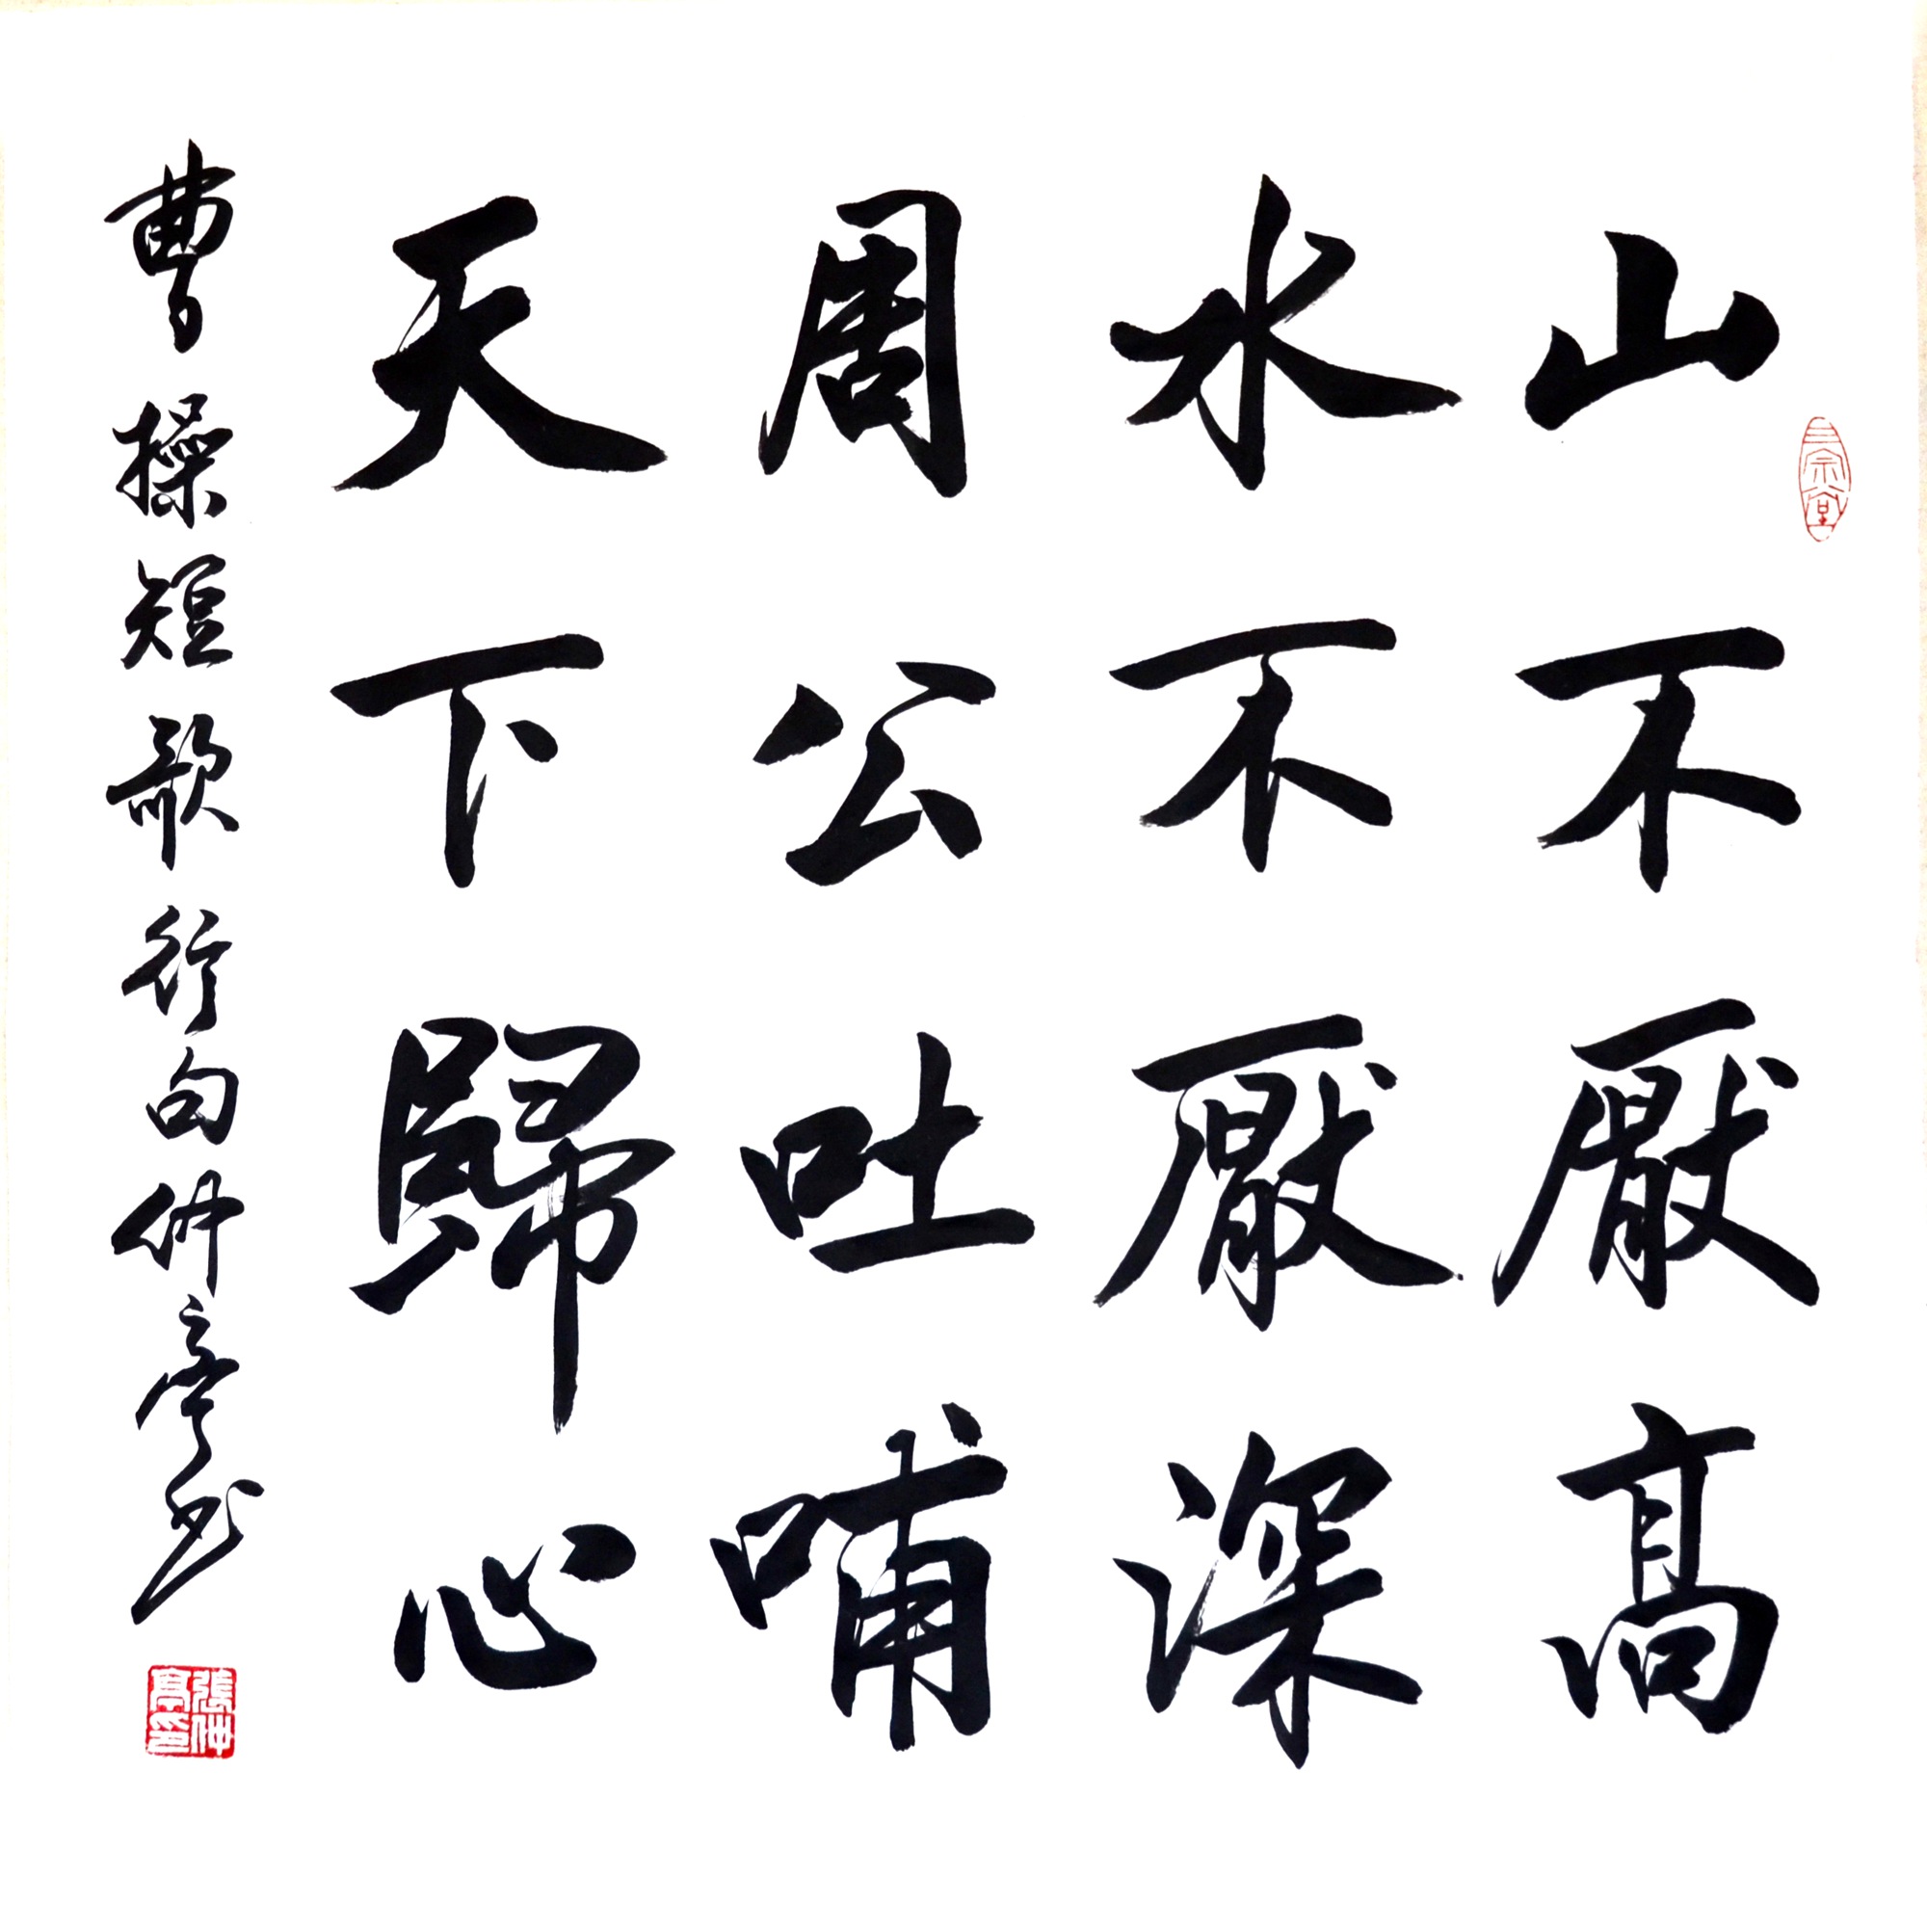 山不厭高
水不厭深
周公吐哺
天下歸心
曹操短歌行句仲亭书
三宗堂
張仲亭印